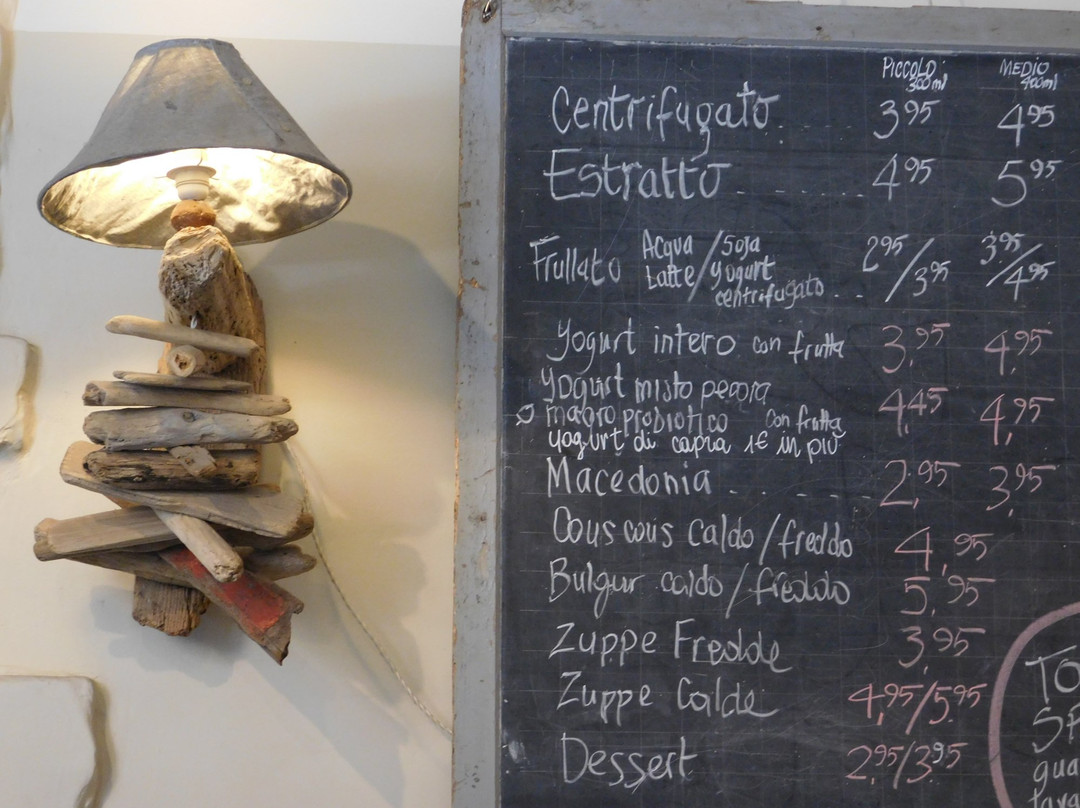 PICCOLO 300ml MEDIO 400ml
Centrifugato. . . - - - 3,95 4,95
Estratto - - . . . . . 4,95 5,95
Frullato Acqua / Soja 2,95 3,95
Latte / yogurt / 3,95 / 4,95
centrifugato . . .
yogurt intero con frutta 3,95 4,95
yogurt misto pecora 4,45 4,95
magro probiotico con frutta
yogurt di capra 1€ in più
Macedonia . . - - - - - 2,95 3,95
Cous cous caldo / freddo 4,95
Bulgur caldo / freddo 5,95
Zuppe Fredde 3,95
Zuppe Calde 4,95/5,95
Dessert 2,95/3,95
TO
SP
qua